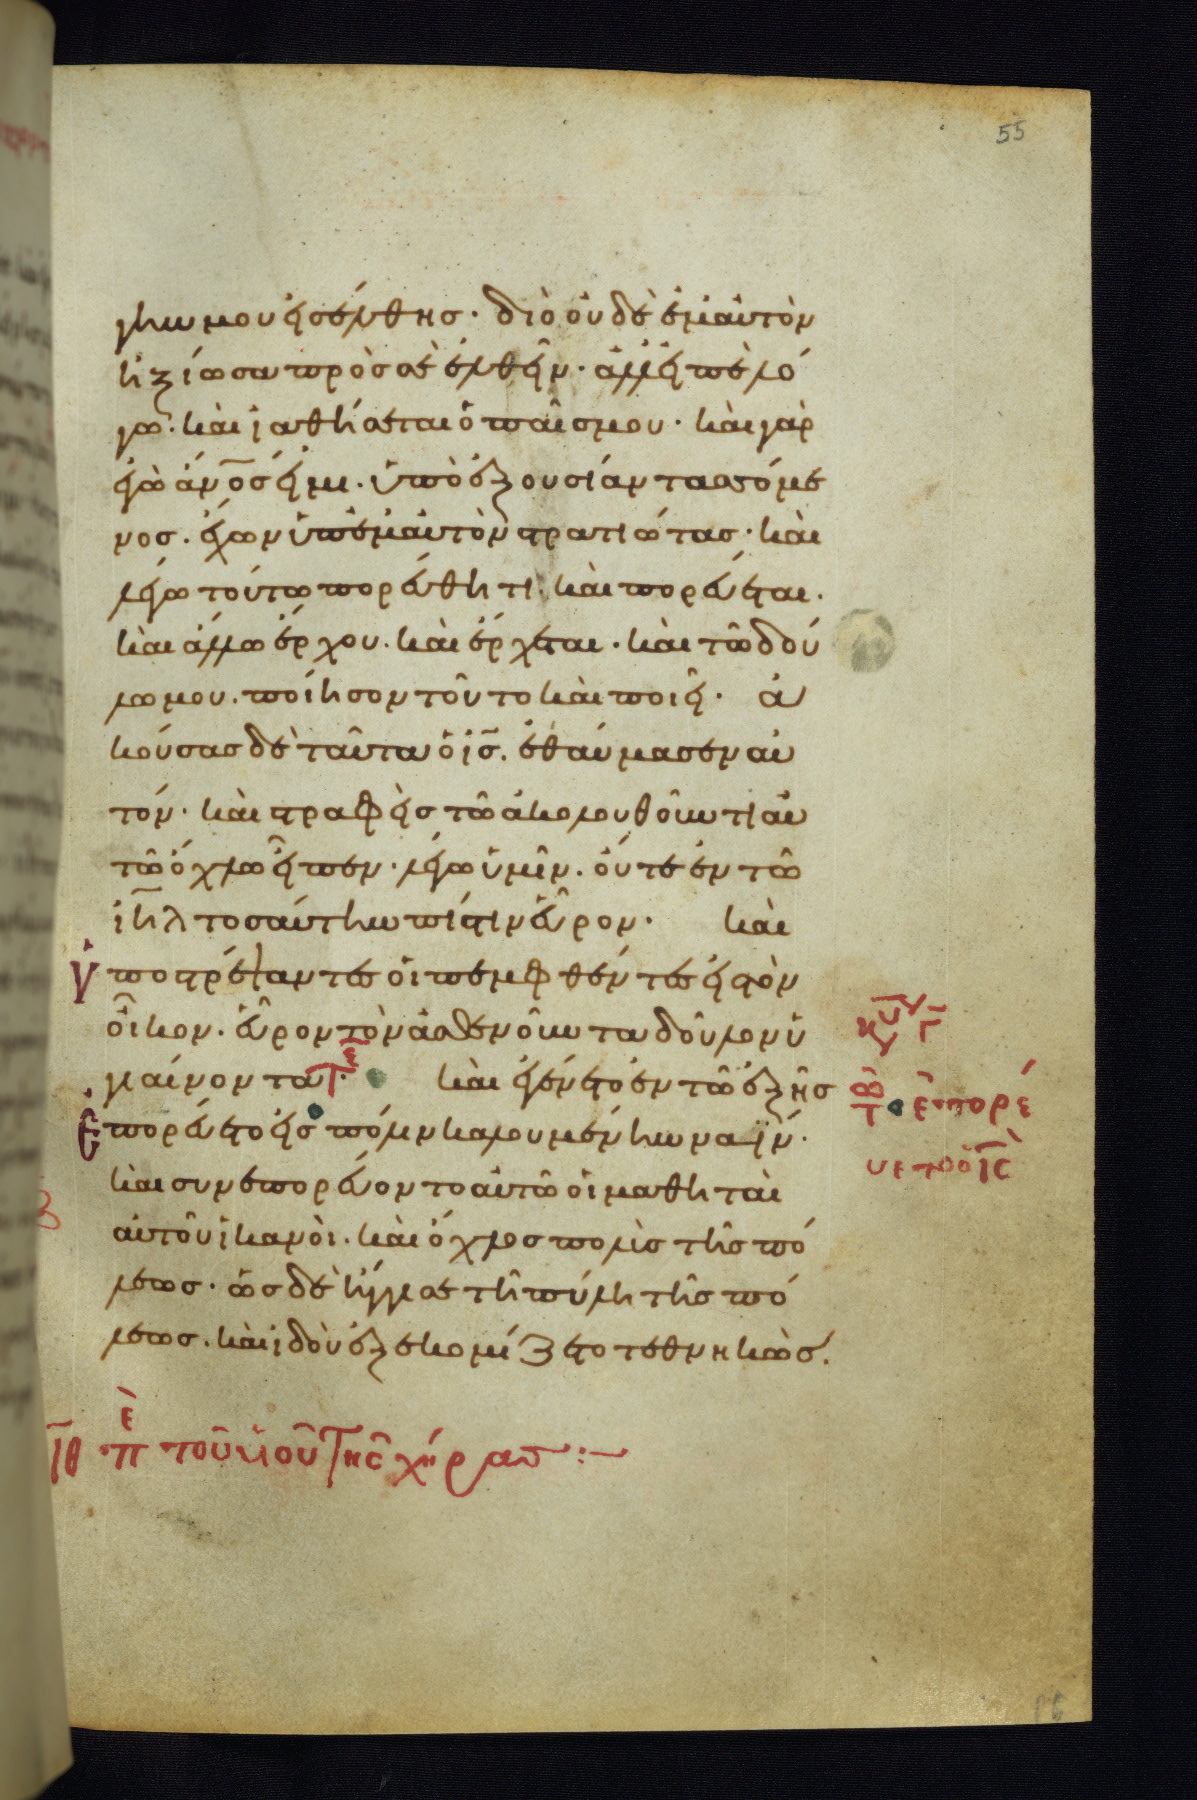 55
γην μου εἰσέλθης· διὸ οὐδὲ ἐμαυτὸν
ἠξίωσα πρὸς σὲ ἐλθεῖν· ἀλλ' εἰπὲ λό
γω· καὶ ἰαθήσεται ὁ παῖς μου· καὶ γὰρ
ἐγὼ ἄν̅ο̅ς εἰμι· ὑπὸ ἐξουσίαν τασσόμε
νος· ἔχων ὑπ' ἐμαυτὸν στρατιώτας· καὶ
λέγω τούτω πορεύθητι· καὶ πορεύεται·
καὶ ἄλλω ἔρχου· καὶ ἔρχεται· καὶ τῶ δού
λω μου· ποίησον τοῦτο καὶ ποιεῖ· ἀ
κούσας δὲ ταῦτα ὁ ἰ̅ς̅· ἐθαύμασεν αὐ
τόν· καὶ στραφεὶς τῶ ἀκολουθοῦντι αὐ
τῶ ὄχλω εἶπεν· λέγω ὑμῖν· οὔτε ἐν τῶ
ἰ̅η̅λ̅ τοσαύτην πίστιν εὗρον· καὶ
ὑποστρέψαντες οἱ πεμφθέντες εἰς τὸν
οἶκον· εὗρον τὸν ἀσθενοῦντα δοῦλον ὑ
γιαίνοντα· καὶ ἐγένετο ἐν τῶ ἑξῆς
ἐπορεύετο εἰς πόλιν καλουμένην ναΐν·
καὶ συνεπορεύοντο αὐτῶ οἱ μαθηταὶ
αὐτοῦ ἱκανοὶ· καὶ ὄχλος πολὺς τῆς πό
λεως· ὡς δὲ ἤγγισε τῆ πύλη τῆς πό
λεως· καὶ ἰδοὺ ἐξεκομίζετο τεθνηκὼς·
κυ γ
ἐπορέ
υετο ὁ ἰ̅ς̅
ι̅θ̅ πε τοῦ υἱοῦ τῆς χήρας :~